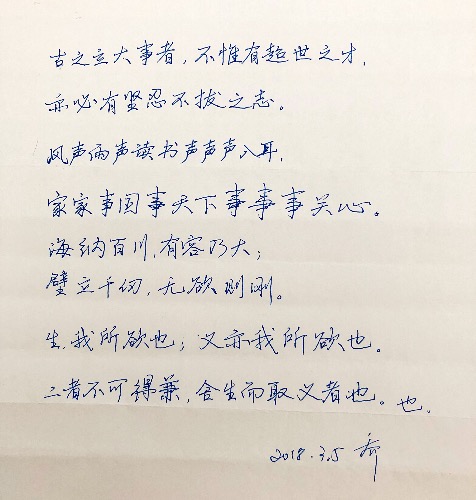 古之立大事者，不惟有超世之才，
亦必有坚忍不拔之志。
风声雨声读书声声声入耳，
家家事国事天下事事事关心。
海纳百川，有容乃大；
壁立千仞，无欲则刚。
生，我所欲也；义亦我所欲也。
二者不可得兼，舍生而取义者也。也，
2018.3.5 乔